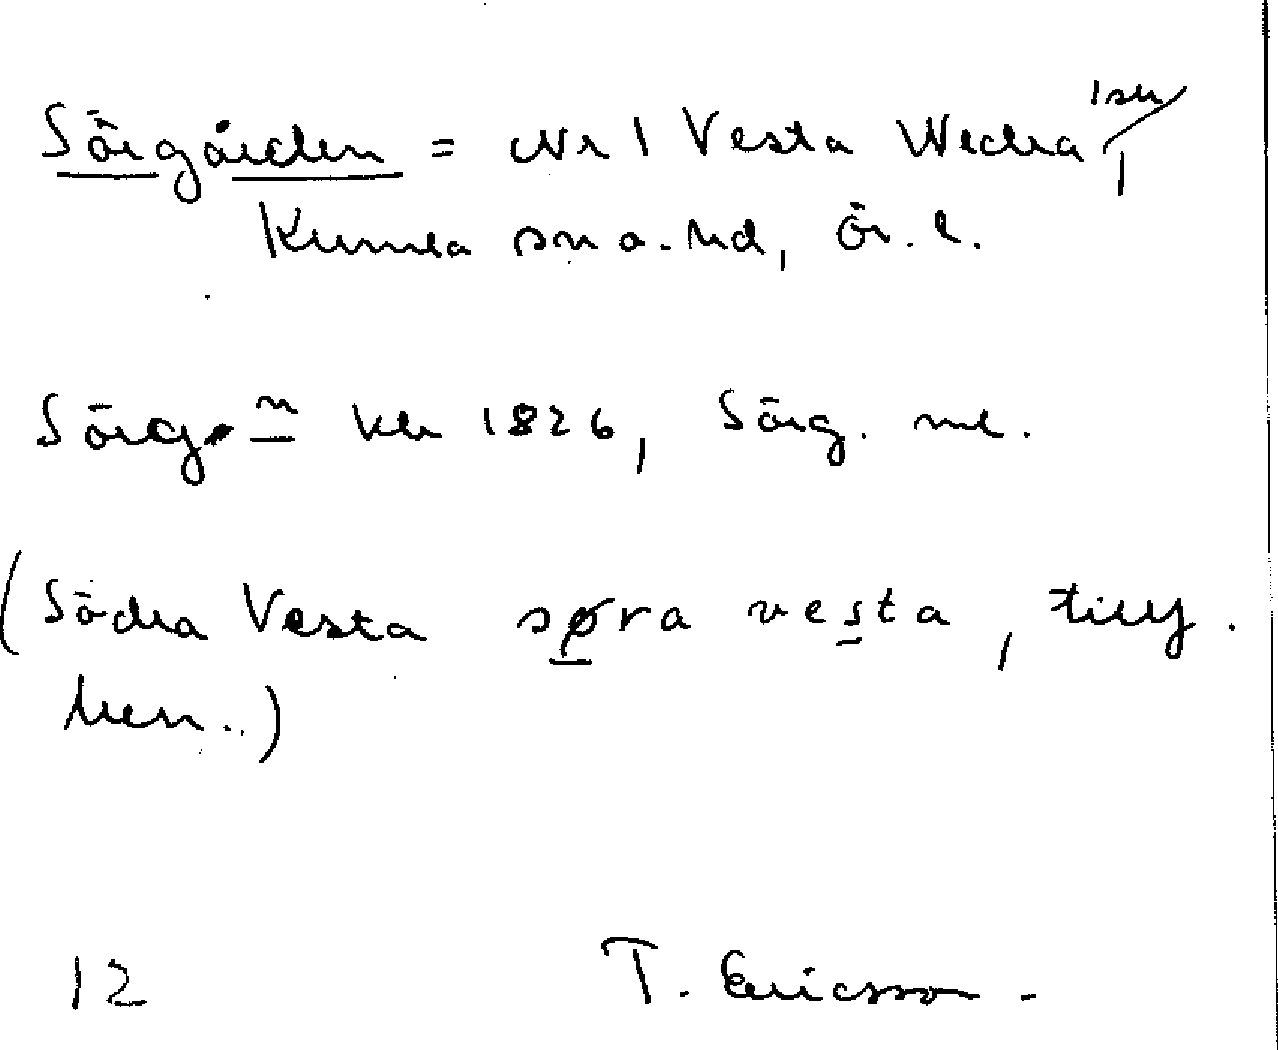 Sörgården = Nr 1 Vesta Nedra, 1 sk/
Kumla sn o. hd, Ör. l.
Sörg.n kb 1826, Sörg. ml.
(Södra Vesta søra vesta, till
hem..)
12 T. Ericsson.